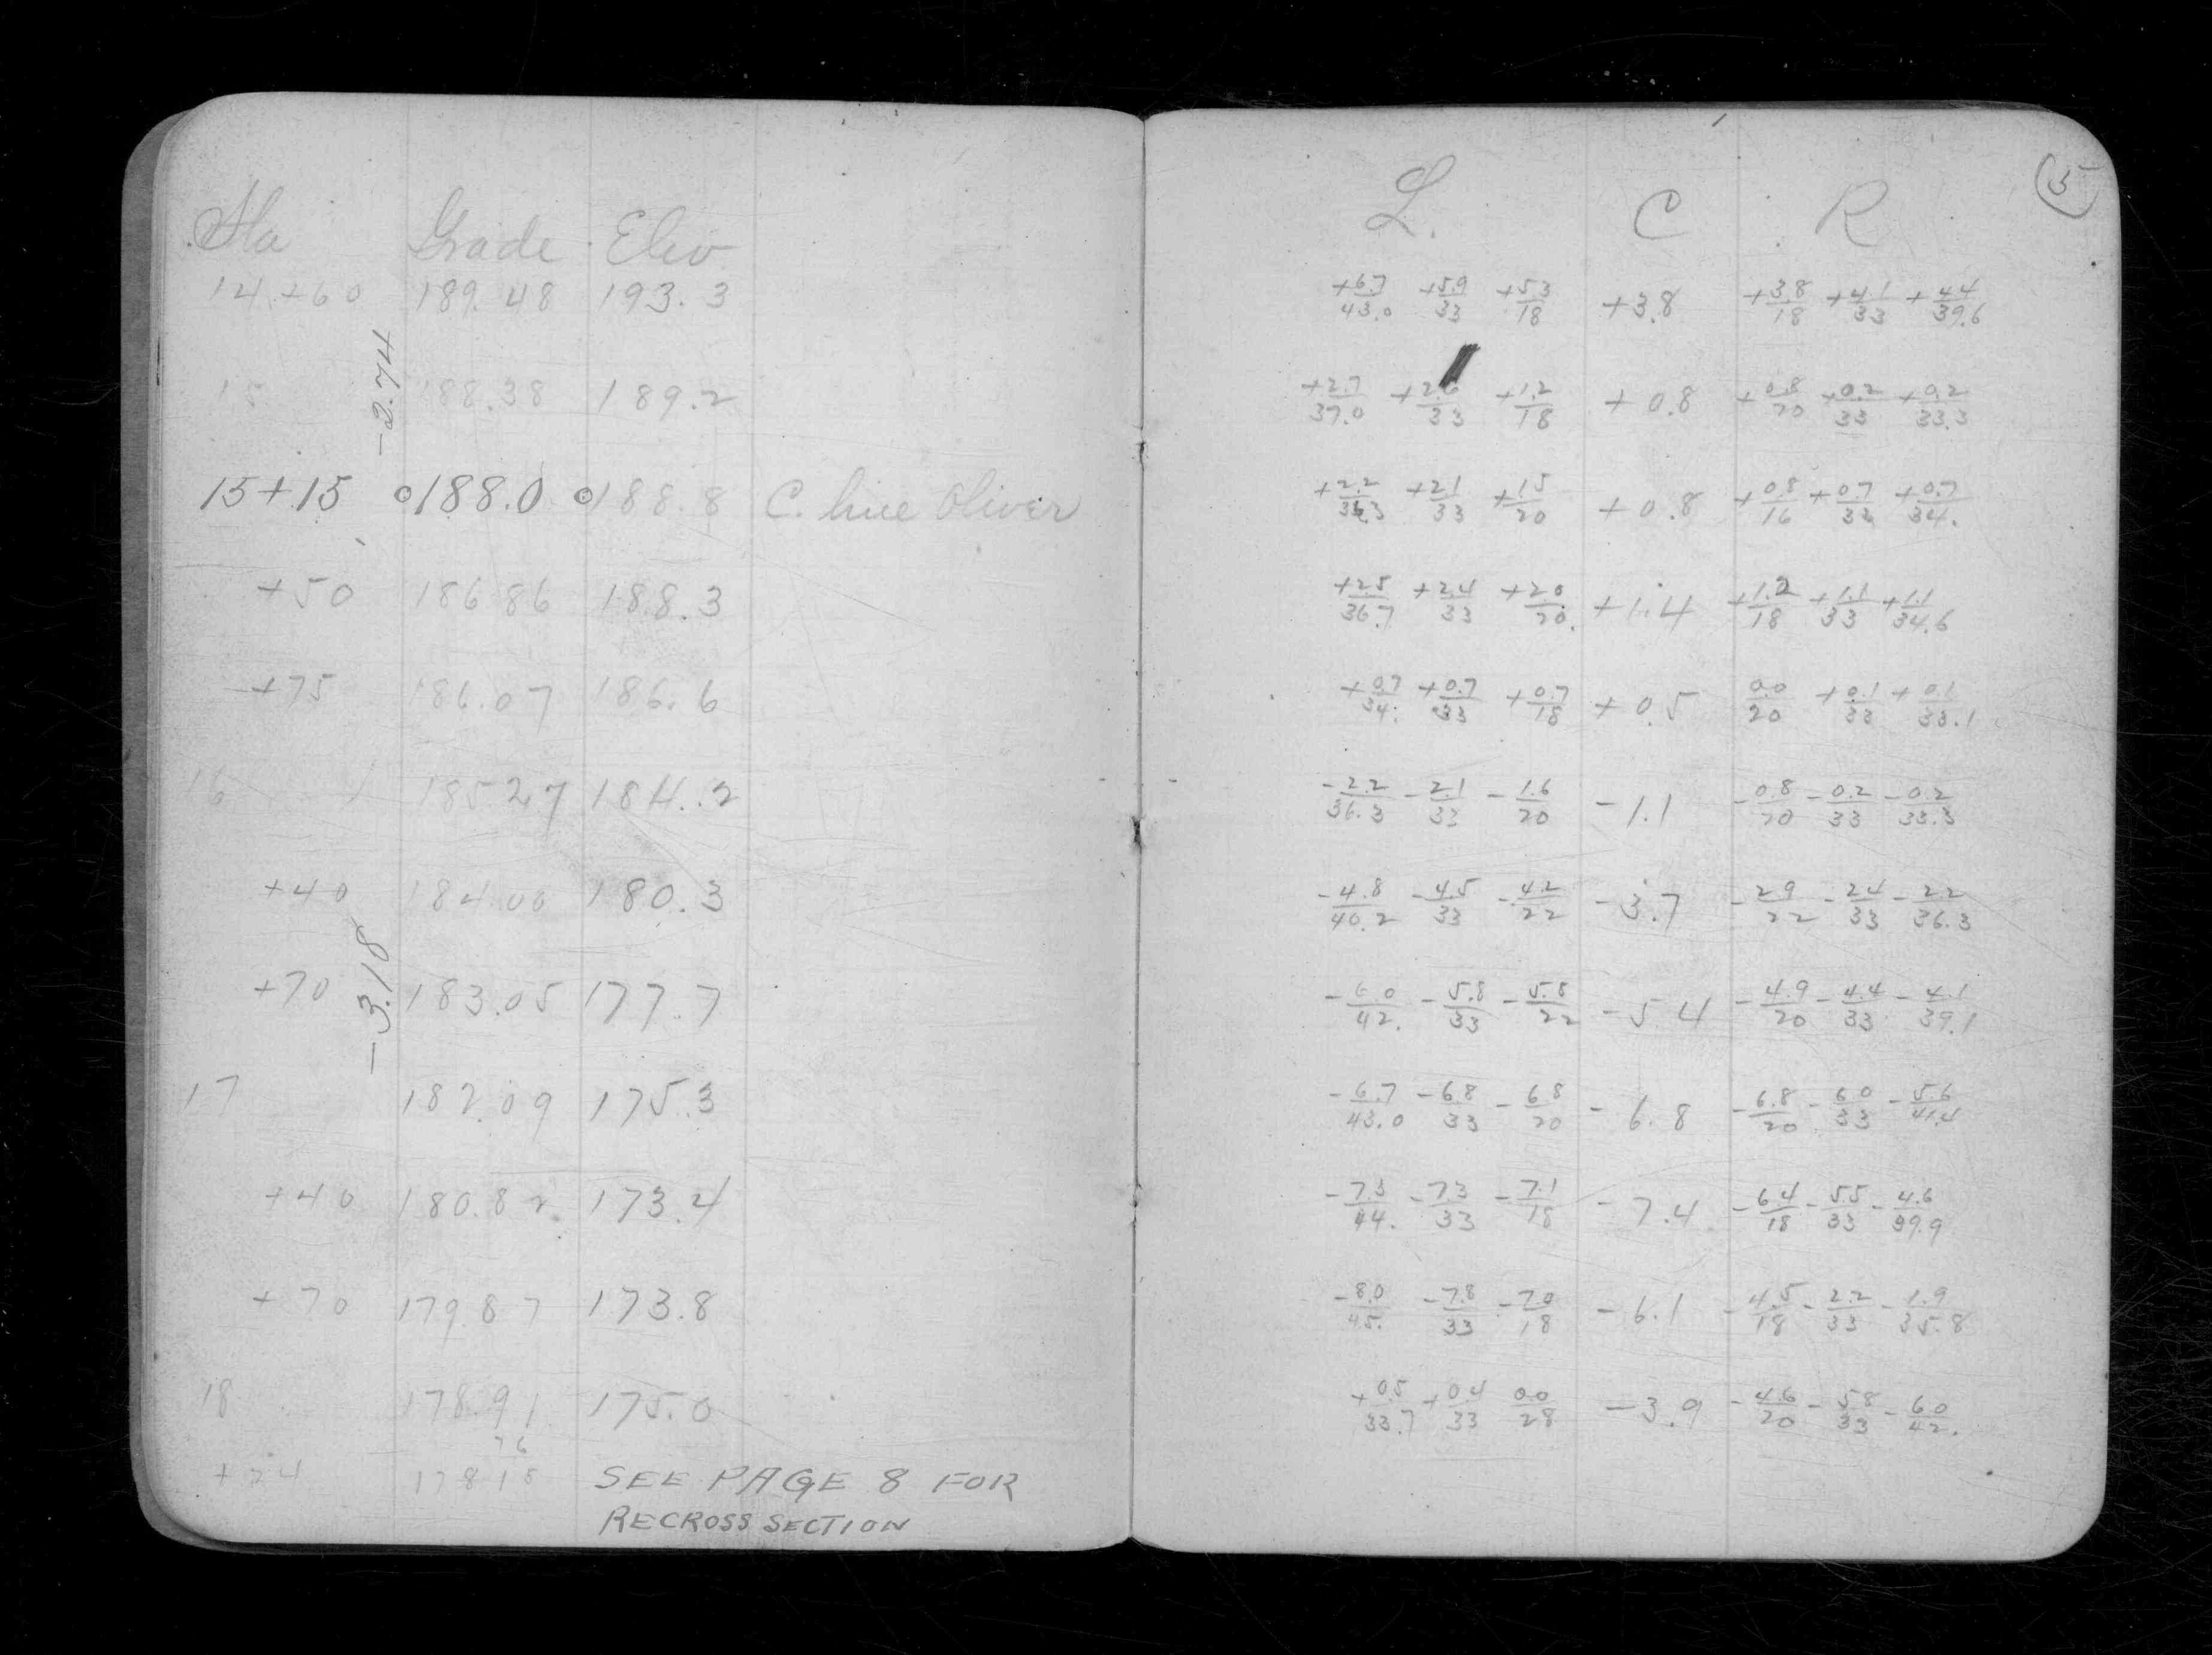 Sta Grade Elev
14+60 189.48 193.3
-2.74
15 188.38 189.2
15+15 188.0 188.8 C. line Oliver
+50 186.86 188.3
+75 186.07 186.6
16 185.27 184.2
+40 184.00 180.3
-3.18
+70 183.05 177.7
17 182.09 175.3
+40 180.82 173.4
+70 179.87 173.8
18 178.91 175.0
76
+24 178.15 SEE PAGE 8 FOR
RECROSS SECTION
5
L. C R
+6.7/43.0 +5.9/33 +5.3/18 +3.8 +3.8/18 +4.1/33 +4.4/39.6
+2.7/37.0 +2.6/33 +1.2/18 +0.8 +0.8/20 +0.2/33 +0.2/33.3
+2.2/36.3 +2.1/33 +1.5/20 +0.8 +0.8/16 +0.7/33 +0.7/34.
+2.5/36.7 +2.4/33 +2.0/20. +1.4 +1.2/18 +1.1/33 +1.1/34.6
+0.7/34. +0.7/33 +0.7/18 +0.5 0.0/20 +0.1/33 +0.1/33.1
-2.2/36.3 -2.1/33 -1.6/20 -1.1 -0.8/20 -0.2/33 -0.2/33.3
-4.8/40.2 -4.5/33 -4.2/22 -3.7 -2.9/22 -2.4/33 -2.2/36.3
-6.0/42. -5.8/33 -5.8/22 -5.4 -4.9/20 -4.4/33 -4.1/39.1
-6.7/43.0 -6.8/33 -6.8/20 -6.8 -6.8/20 -6.0/33 -5.6/41.4
-7.3/44. -7.3/33 -7.1/18 -7.4 -6.4/18 -5.5/33 -4.6/39.9
-8.0/45. -7.8/33 -7.0/18 -6.1 -4.5/18 -2.2/33 -1.9/35.8
+0.5/33.7 +0.4/33 0.0/28 -3.9 -4.6/20 -5.8/33 -6.0/42.